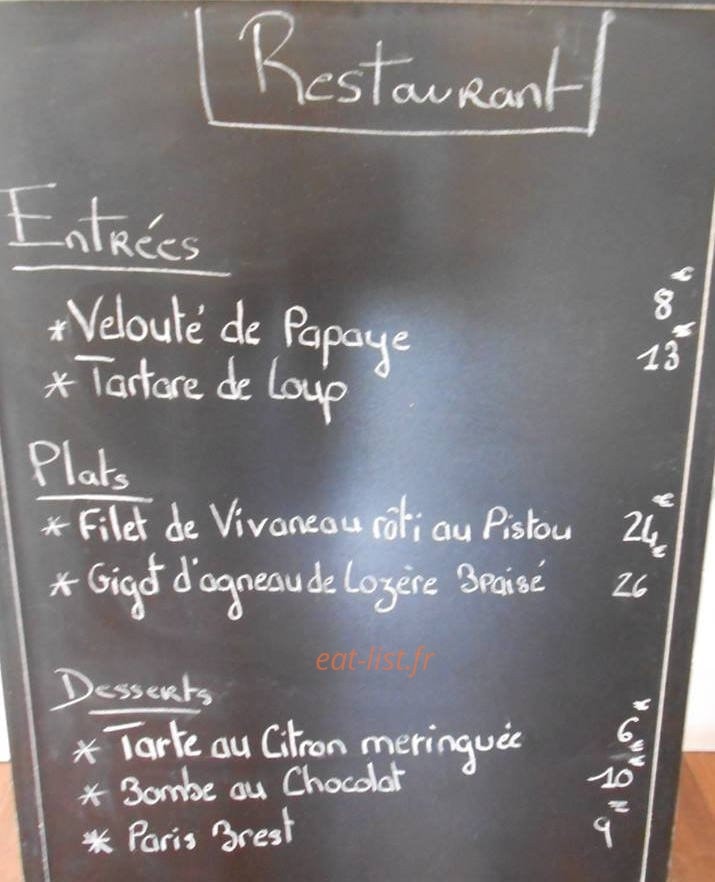 Restaurant
Entrées
* Velouté de Papaye 8€
* Tartare de Loup 13€
Plats
* Filet de Vivaneau rôti au Pistou 24€
* Gigot d'agneau de Lozère Braisé 26€
eat-list.fr
Desserts
* Tarte au Citron meringuée 6€
* Bombe au Chocolat 10€
* Paris Brest 9€